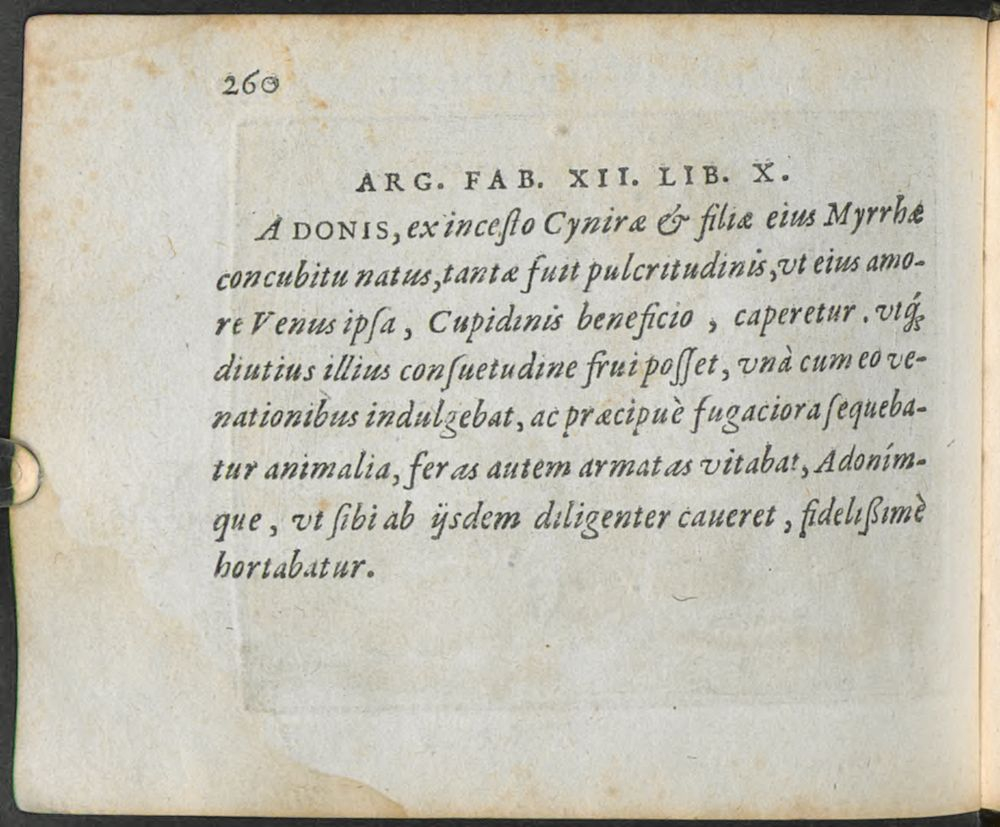 260
ARG. FAB. XII. LIB. X.
ADONIS, ex incesto Cyniræ & filiæ eius Myrrhæ
concubitu natus, tantæ fuit pulcritudinis, vt eius amo-
re Venus ipsa, Cupidinis beneficio, caperetur. vtq́;
diutius illius consuetudine frui posset, vnà cum eo ve-
nationibus indulgebat, ac præcipuè fugaciora sequeba-
tur animalia, feras autem armatas vitabat, Adoním-
que, vt sibi ab ijsdem diligenter caueret, fidelißimè
hortabatur.